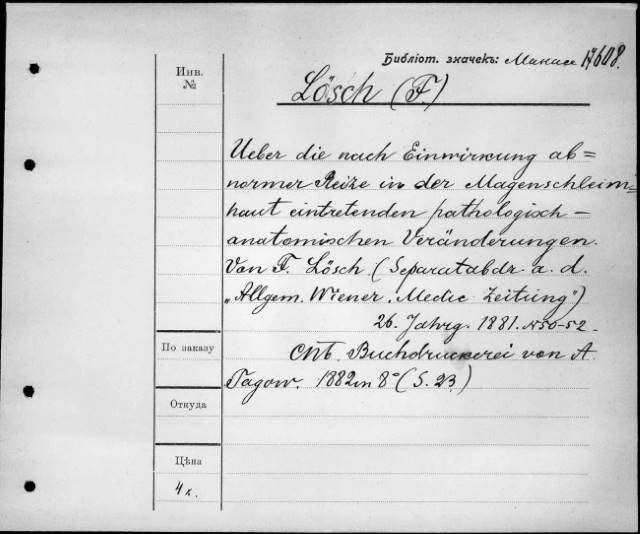 Библіот. значекъ: Манасе 17608.
Инв. №
Lösch (F.)
Ueber die nach Einwirkung ab=
normer Reize in der Magenschleim=
haut eintretenden pathologisch –
anatomischen Veränderungen.
Von F. Lösch. (Separatabdr. a. d.
„Allgem. Wiener. Medic Zeitung")
26. Jahrg. 1881. №50-52.
По заказу
СПб. Buchdruckerei von A.
Pagow. 1882 in 8° (S. 23.)
Откуда
Цѣна
4 к.